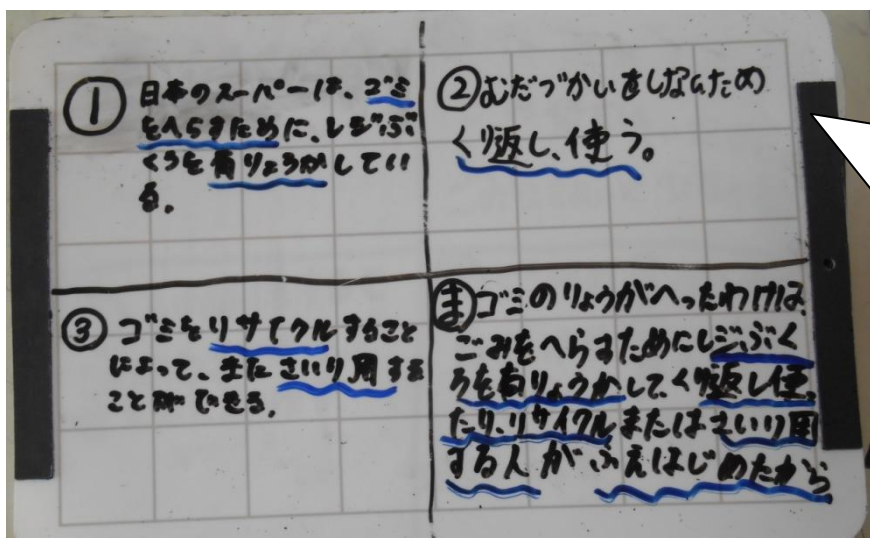 ① 日本のスーパーは、ゴミ
をへらすために、レジぶ
くろを有りょうかしてい
る。
② むだづかいをしないため
くり返し、使う。
③ ゴミをリサイクルすること
によって、またさいり用する
ことができる。
ま ゴミのりょうがへったわけは、
ごみをへらすためにレジぶく
ろを有りょうかして、くり返し使っ
たり、リサイクルまたはさいり用
する人がふえはじめたから